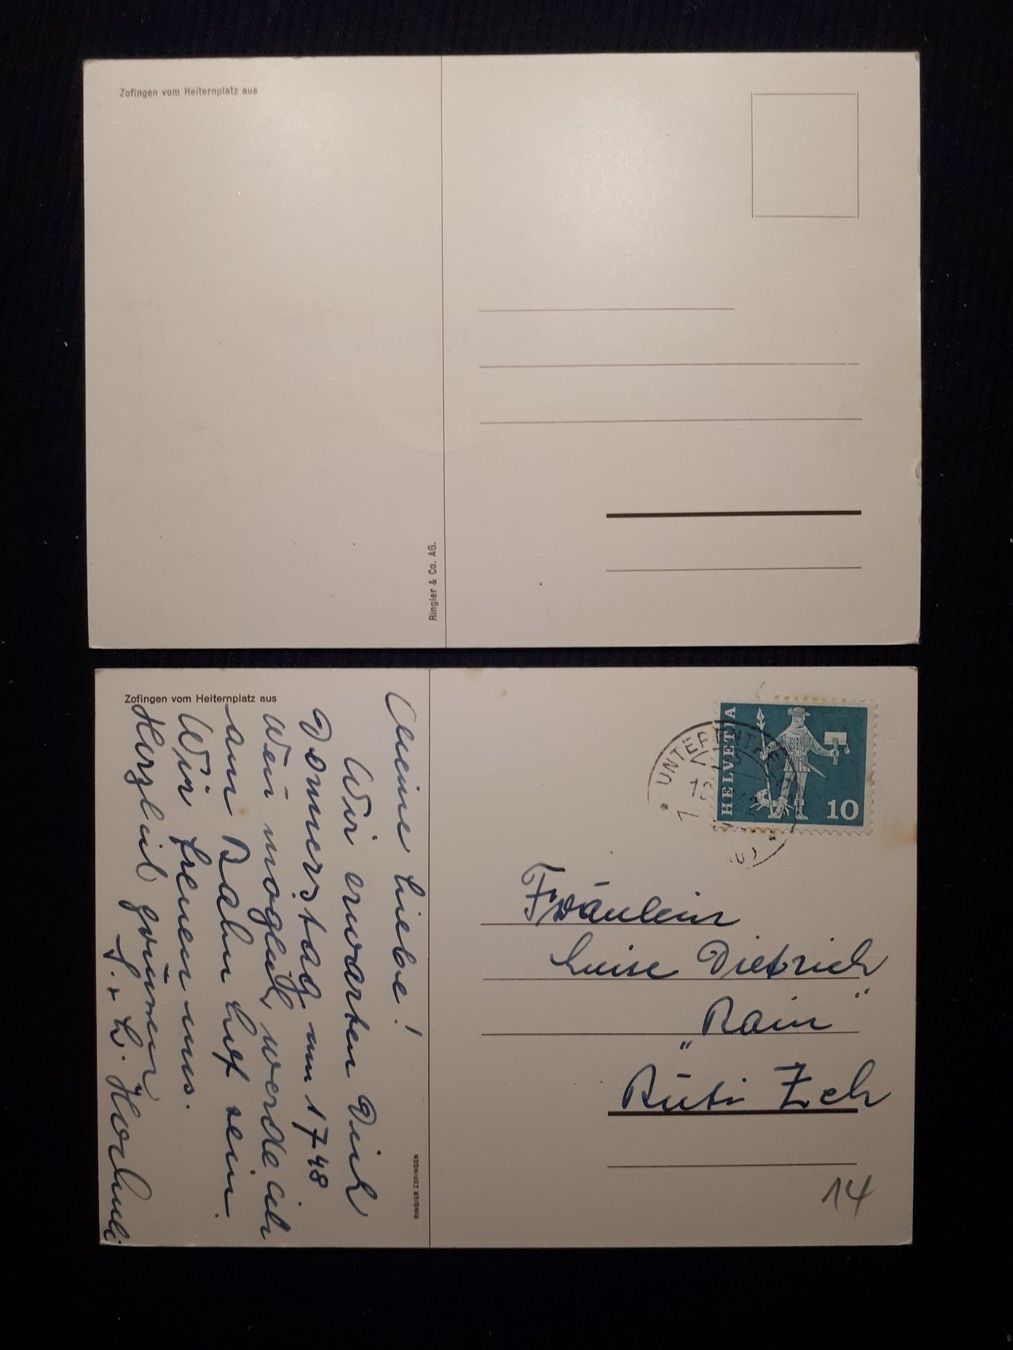 Zofingen vom Heiternplatz aus
Ringler & Co. AG.
Zofingen vom Heiternplatz aus
Meine Liebe!
Wir erwarten Dich
Donnerstag um 17 48
Wen möglich, werde ich
am Bahn hof sein.
Wir freuen uns.
Herzlich grüssen
L. Hochuli
RINGIER ZOFINGEN
HELVETIA
10
Fräulein
Luise Dietrich
"Rain"
Rüti Zch
14